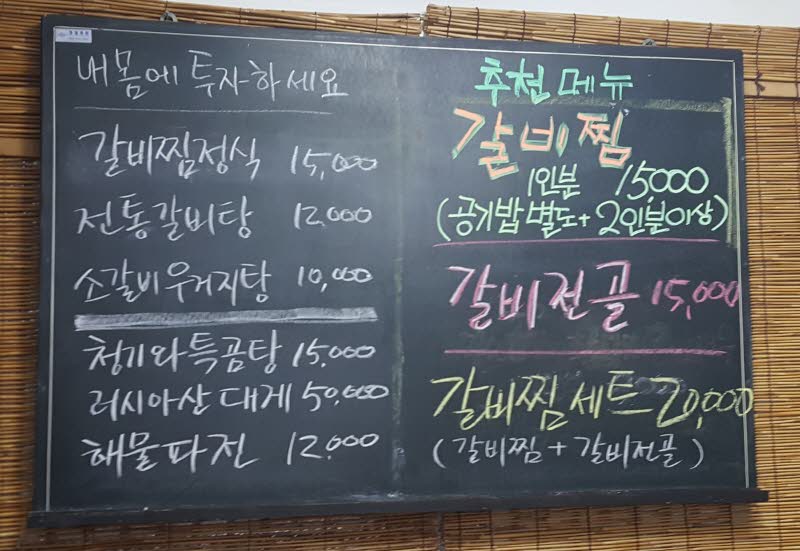 내몸에 투자하세요
갈비찜정식 15,000
전통갈비탕 12,000
소갈비우거지탕 10,000
청기와특곰탕 15,000
러시아산대게 50,000
해물파전 12,000
추천메뉴
갈비찜
1인분 15,000
(공기밥별도+2인분이상)
갈비전골 15,000
갈비찜세트 20,000
(갈비찜+갈비전골)